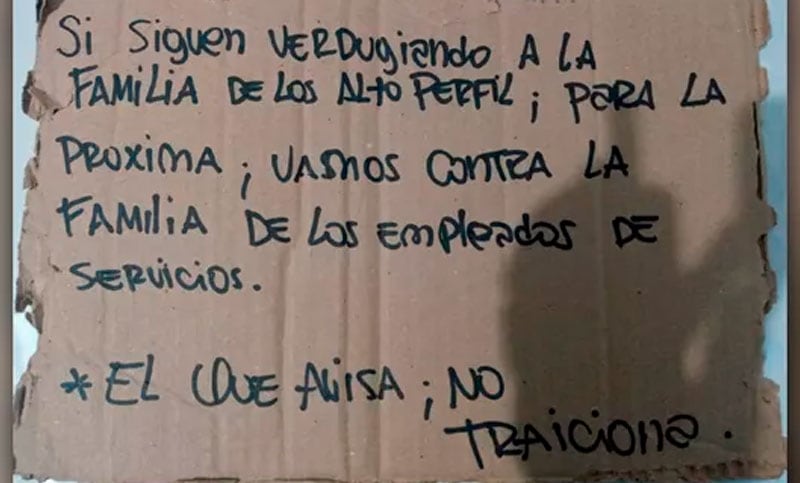 Si SiguEn VERDugiando A LA
FAMiLiA DE LOS Alto PERFiL ; PARA LA
PROXiMA ; VAmOS CONTRA LA
FAMiliA DE LOS EmplEados DE
SERViCiOS.
* EL QUE AViSA ; NO
TRAiCiona.